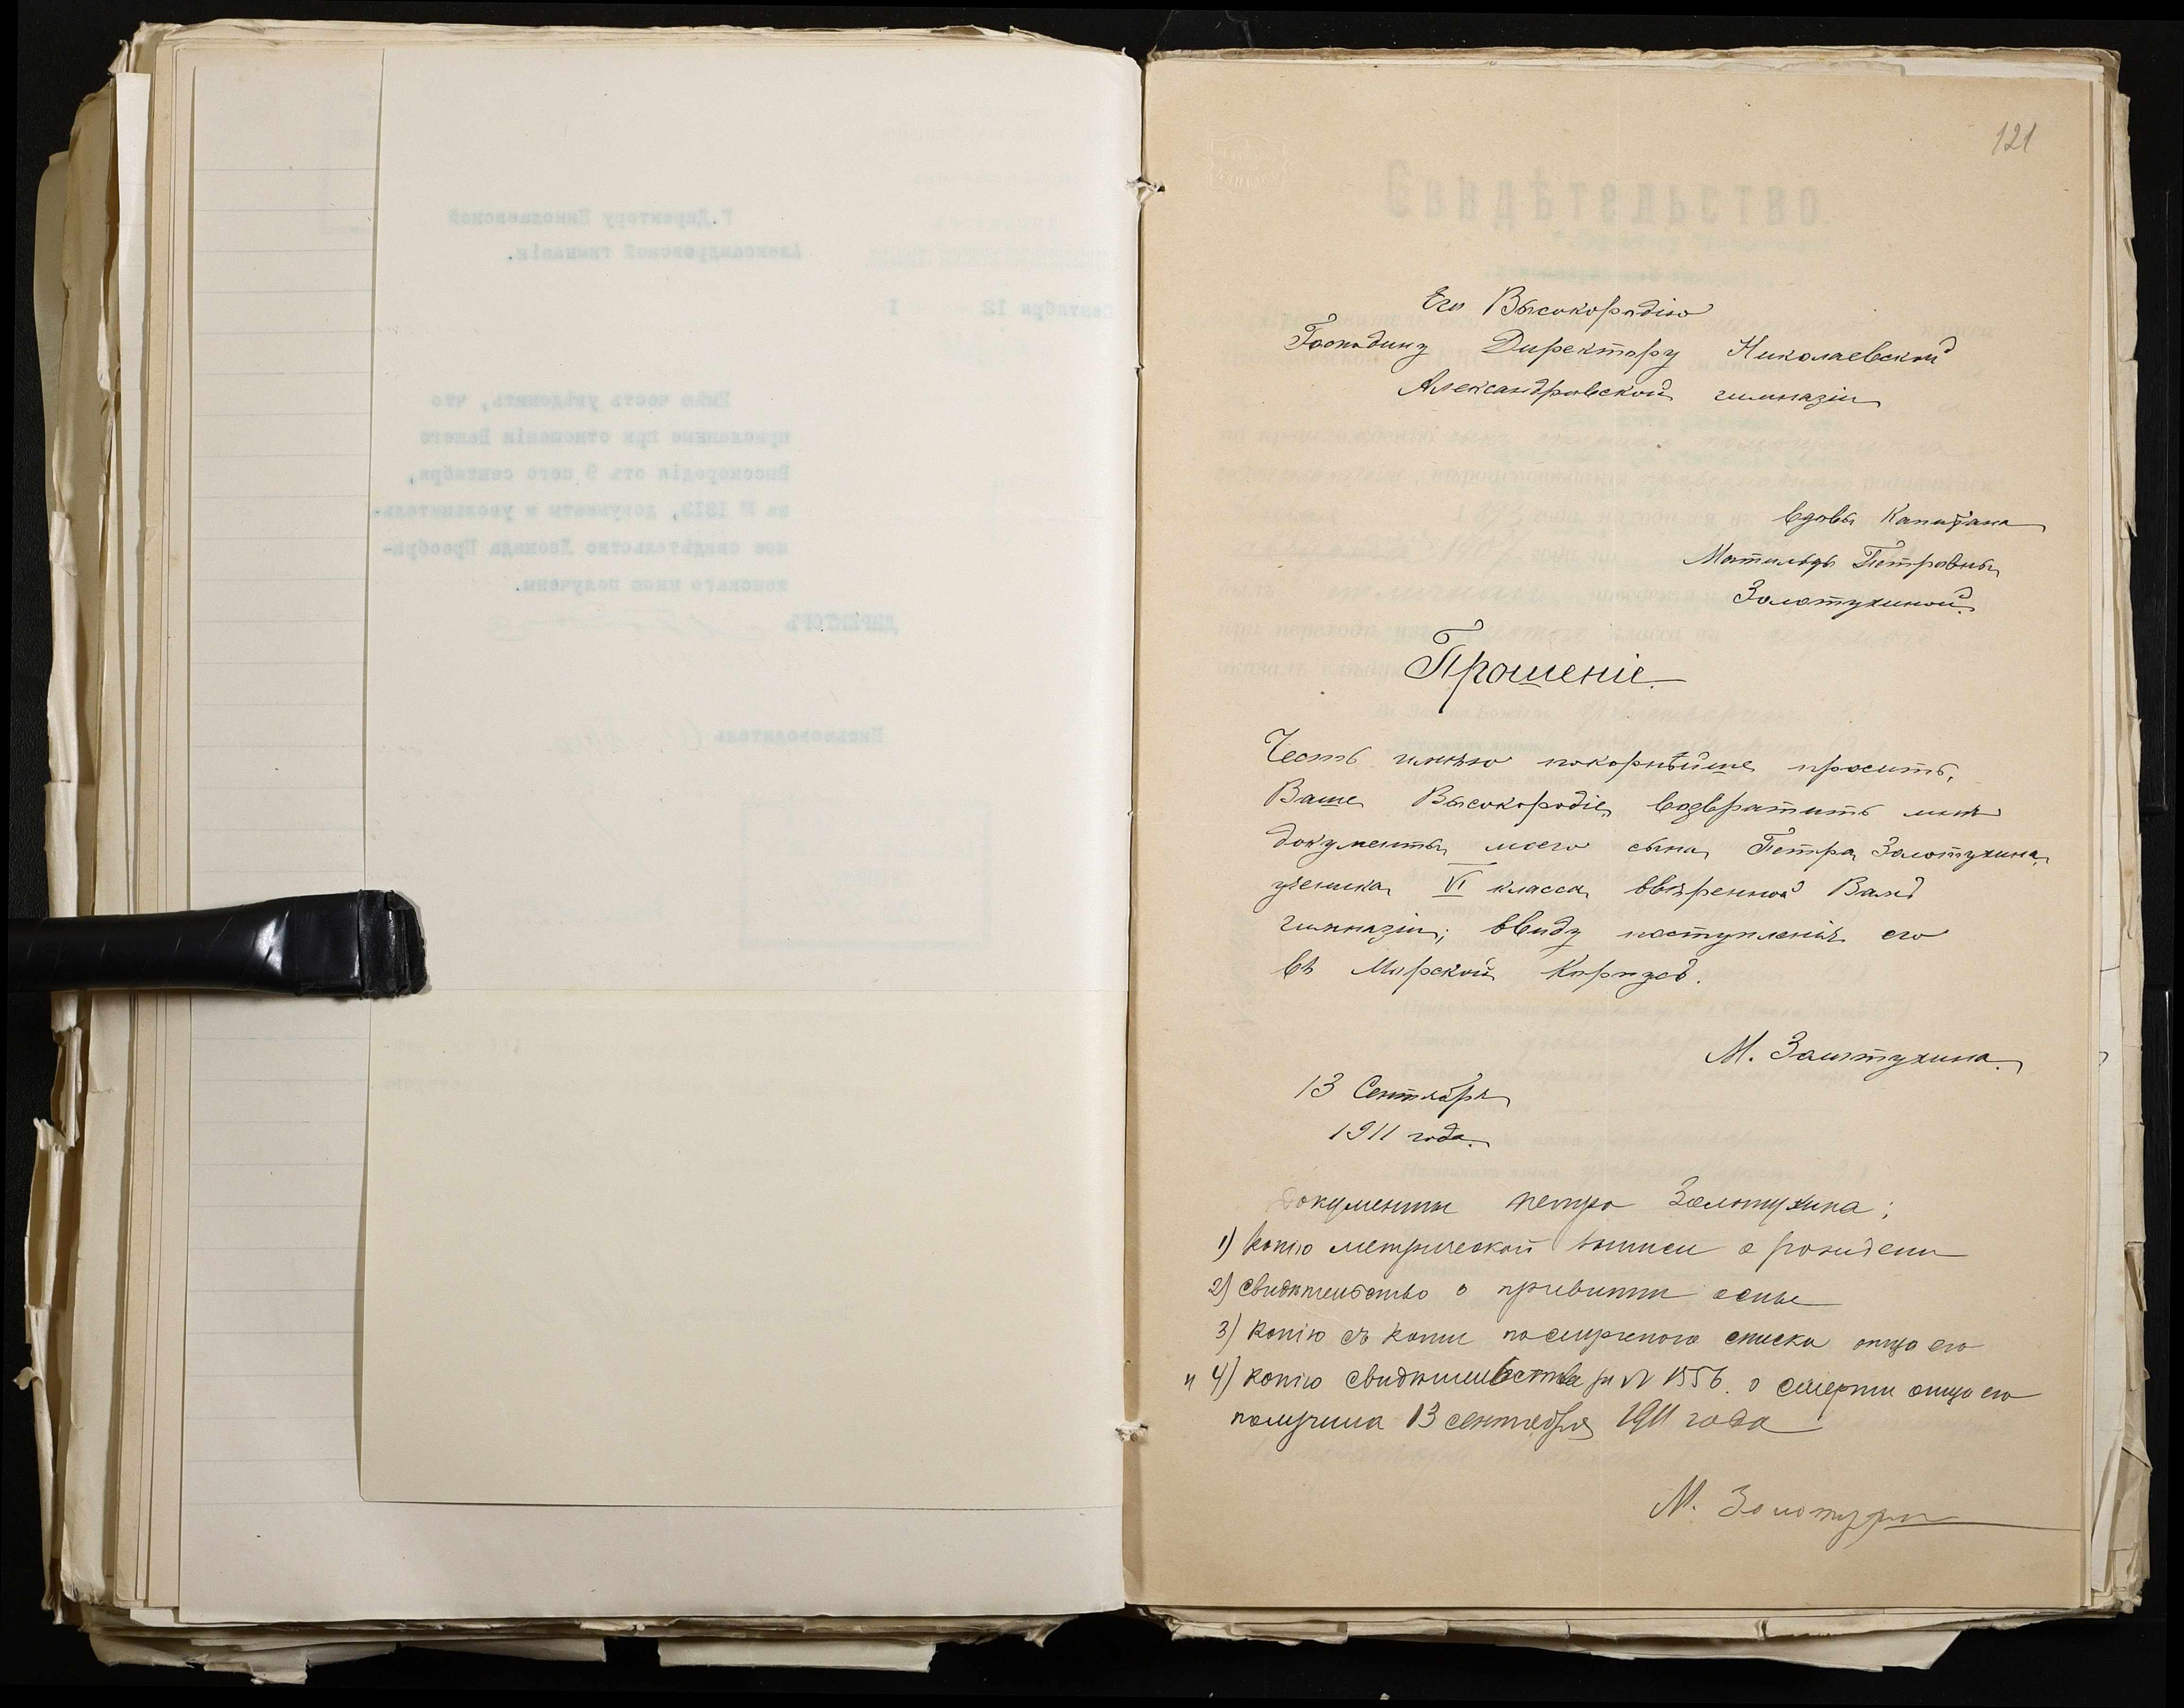 121
Его Высокородію
Господину Директору Николаевской
Александровской гимназіи
вдовы Капитана
Матильды Петровны
Золотухиной.
Прошеніе.
Честь имѣю покорнѣйше просить,
Ваше Высокородіе, возвратить мнѣ
документы моего сына Петра Золотухина,
ученика VI класса ввѣренной Вамъ
гимназіи; ввиду поступленія его
въ Морской Корпусъ.
М. Золотухина.
13 Сентября
1911 года.
Документы Петра Золотухина:
1) копію метрической выписи о рожденіи
2) свидѣтельство о привитіи оспы
3) копію съ копіи послужного списка отца его
и 4) копію свидѣтельства за № 1556. о смерти отца его
получила 13 сентября 1911 года
М. Золотухина
Г.Директору Николаевской
Александровской гимназіи.
Сентября 12 1
Имѣю честь увѣдомить, что
присланные при отношеніи Вашего
Высокородія отъ 9 сего сентября,
за № 1313, документы и увольнитель-
ное свидѣтельство Леонида Преобра-
женскаго мною получены.
ДИРЕКТОРЪ
Письмоводитель
Свидѣтельство